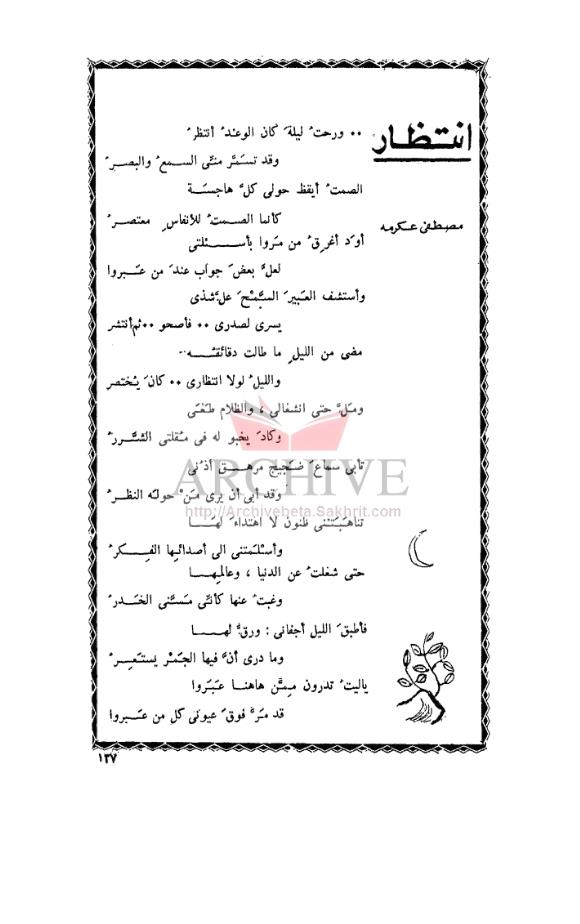 انتظار
مصطفى عكرمه
٠٠ ورحتُ ليلةَ كان الوعدُ أنتظرُ
وقد تسمَّر منّى السمعُ والبصرُ
الصمتُ أيقظ حولى كلَّ هاجسَة
كأنما الصمتُ للأنفاسِ معتصرُ
أودّ أغرقُ من مرّوا بأسئلتى
لعلَّ بعضَ جوابٍ عندَ من عَبروا
وأستشف العَبيرَ السَّمْحَ علَّ شذى
يسرى لصدرى ٠٠ فأصحو ٠٠ ثم أنتشر
مضى من الليلِ ما طالت دقائقُه٠٠
والليلُ لولا انتظارى ٠٠ كانَ يُختصر
وملَّ حتى انشغالى ، والظلام طغَى
وكادَ يخبو له فى مُقلتى الشَّررُ
تأبى سماعَ ضجيجٍ مرهقٍ أذنى
وقد أبى أن يرى مَنْ حولَه النظرُ
تناهبَتنى ظنون لا اهتداءَ لها
وأسْلمتنى الى أصدائها الفِكرُ
حتى شغلتُ عن الدنيا ، وعالمِها
وغبتُ عنها كأنّى مسَّنى الخَدرُ
فأطبقَ الليل أجفانى : ورقَّ لها
وما درى أنَّ فيها الجَمْر يستَعِرُ
ياليتُ تدرون مِمَّن هاهنا عبَروا
قد مَرَّ فوقَ عيونى كل من عَبروا
ARCHIVE
http://Archivebeta.Sakhrit.com
١٣٧